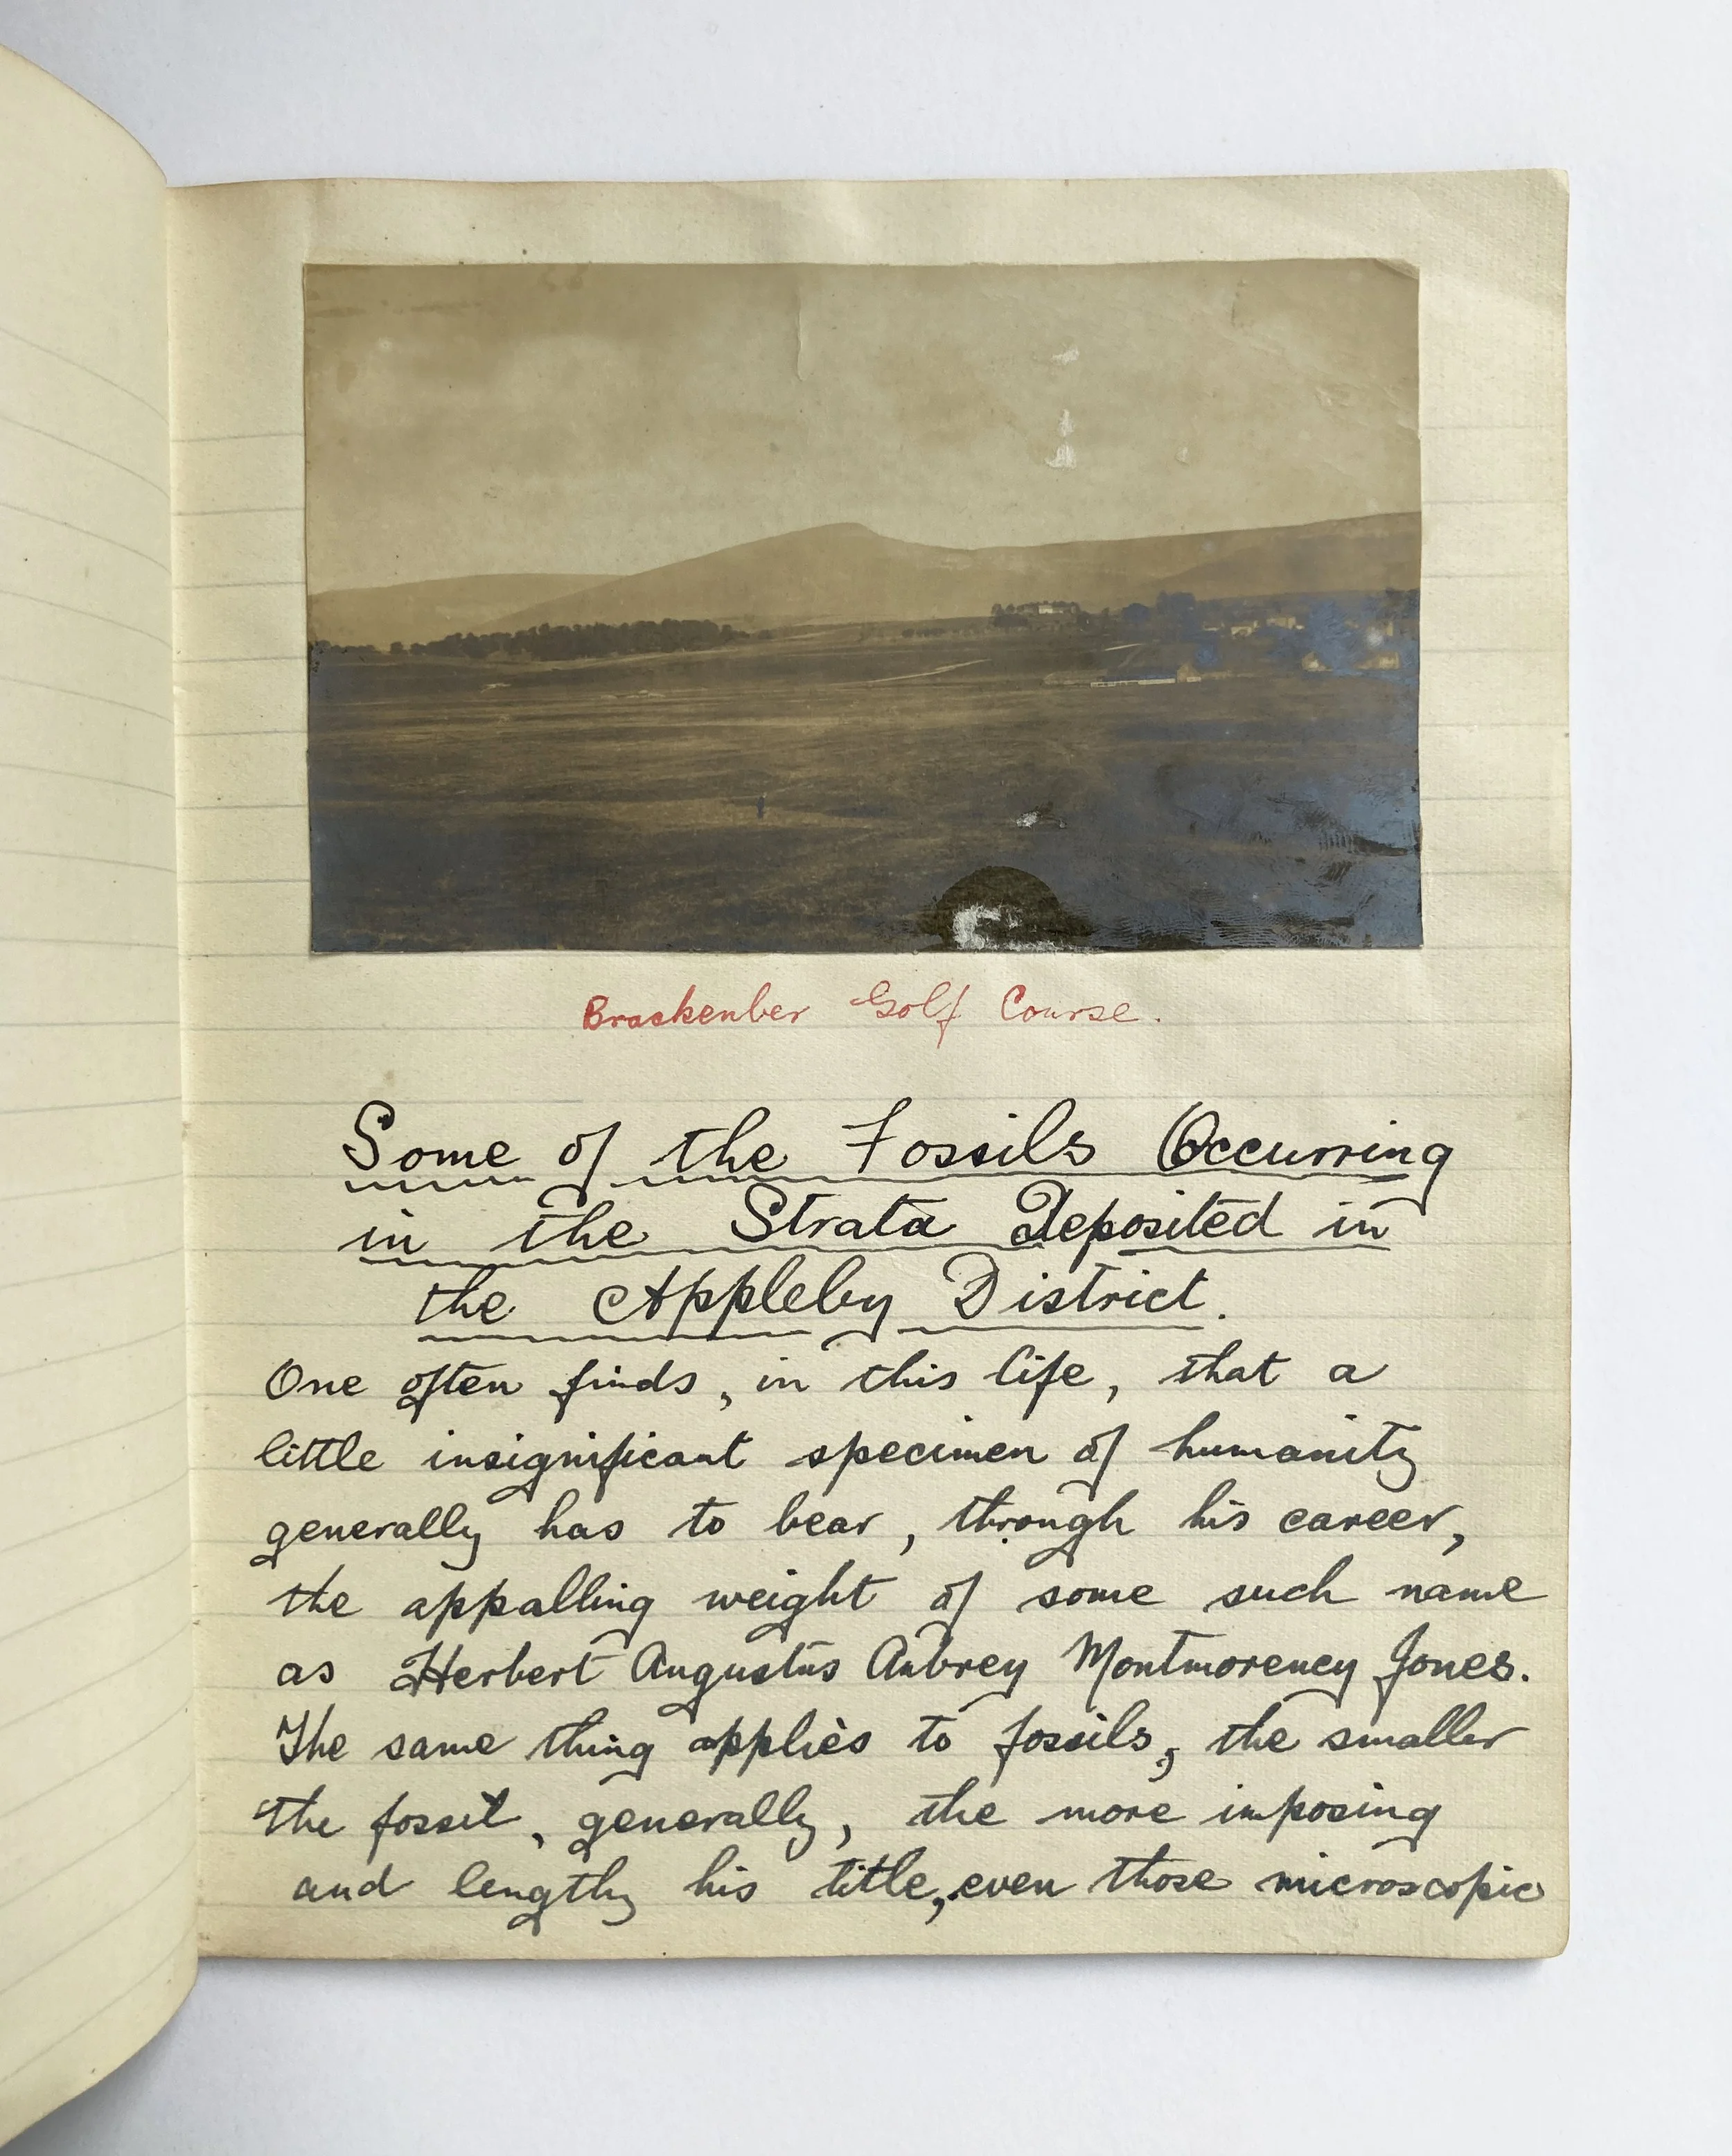 Brackenber Golf Course.
Some of the Fossils Occurring
in the Strata Deposited in
the Appleby District.
One often finds, in this life, that a
little insignificant specimen of humanity
generally has to bear, through his career,
the appalling weight of some such name
as Herbert Augustus Aubrey Montmorency Jones.
The same thing applies to fossils, the smaller
the fossil, generally, the more imposing
and lengthy his title, even those microscopic